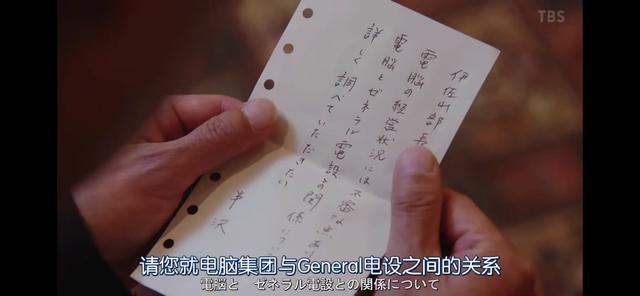 TBS
伊佐山部長
電脳の経営状況には不審な点あり
電脳とゼネラル電設との関係に
詳しく調べていただきたい
半沢
请您就电脑集团与General电设之间的关系
電脳と ゼネラル電設との関係について